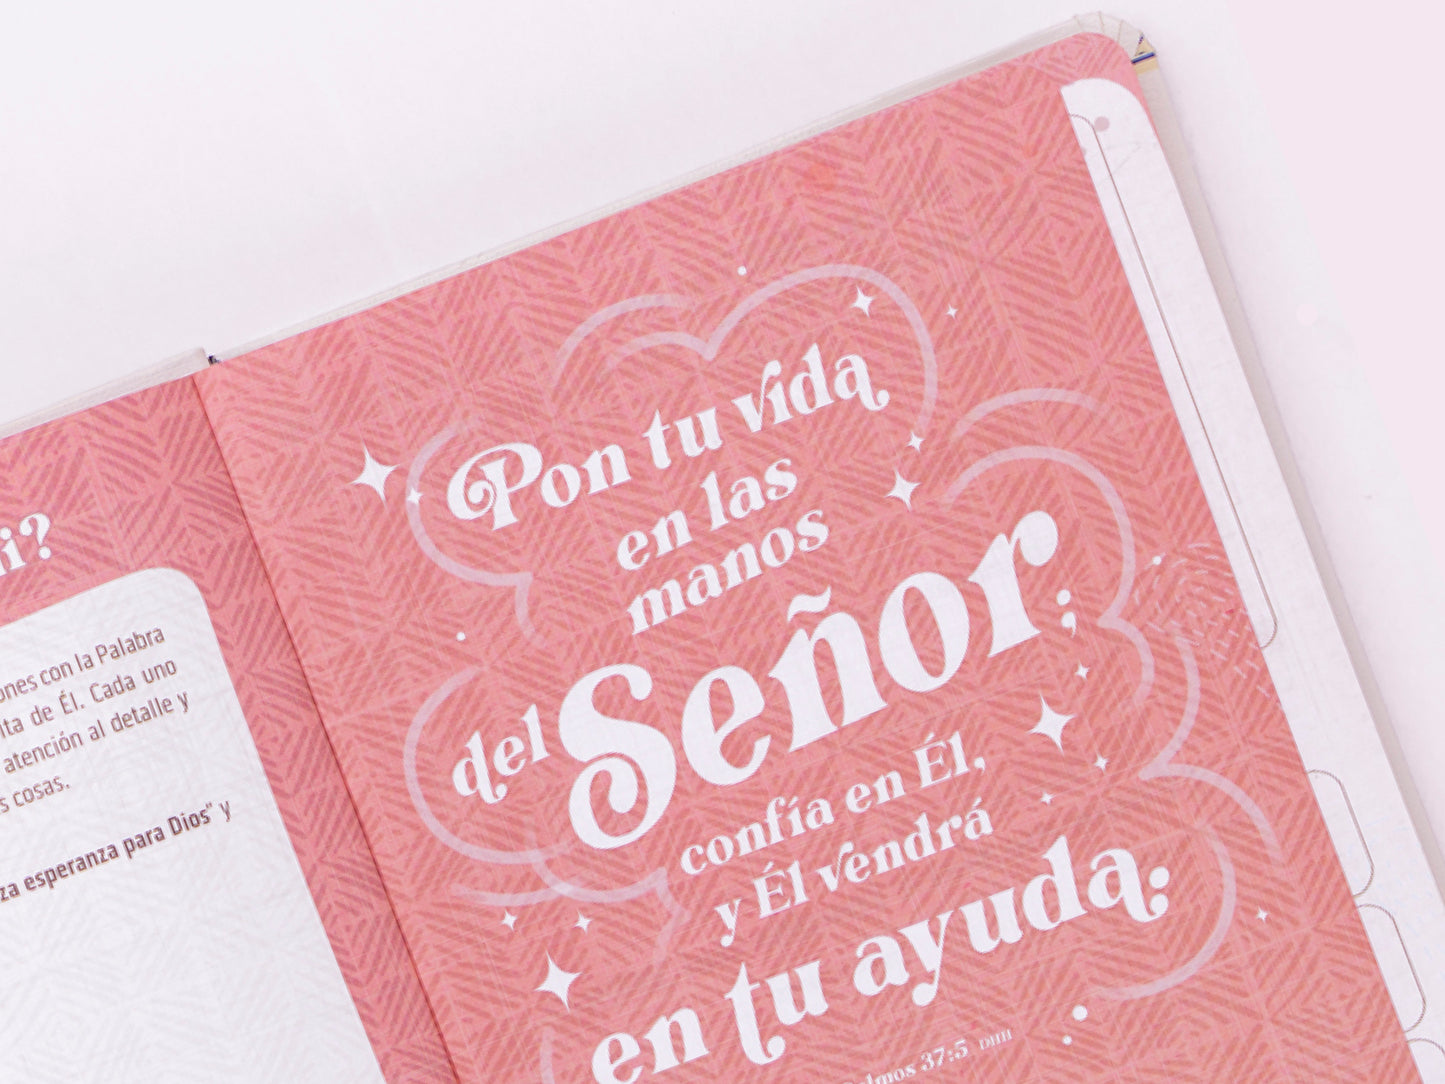 i?
ones con la Palabra
lta de Él. Cada uno
atención al detalle y
s cosas.
za esperanza para Dios" y
Pon tu vida
en las
manos
del Señor;
confía en Él,
y Él vendrá
en tu ayuda.
lmos 37:5 DHH